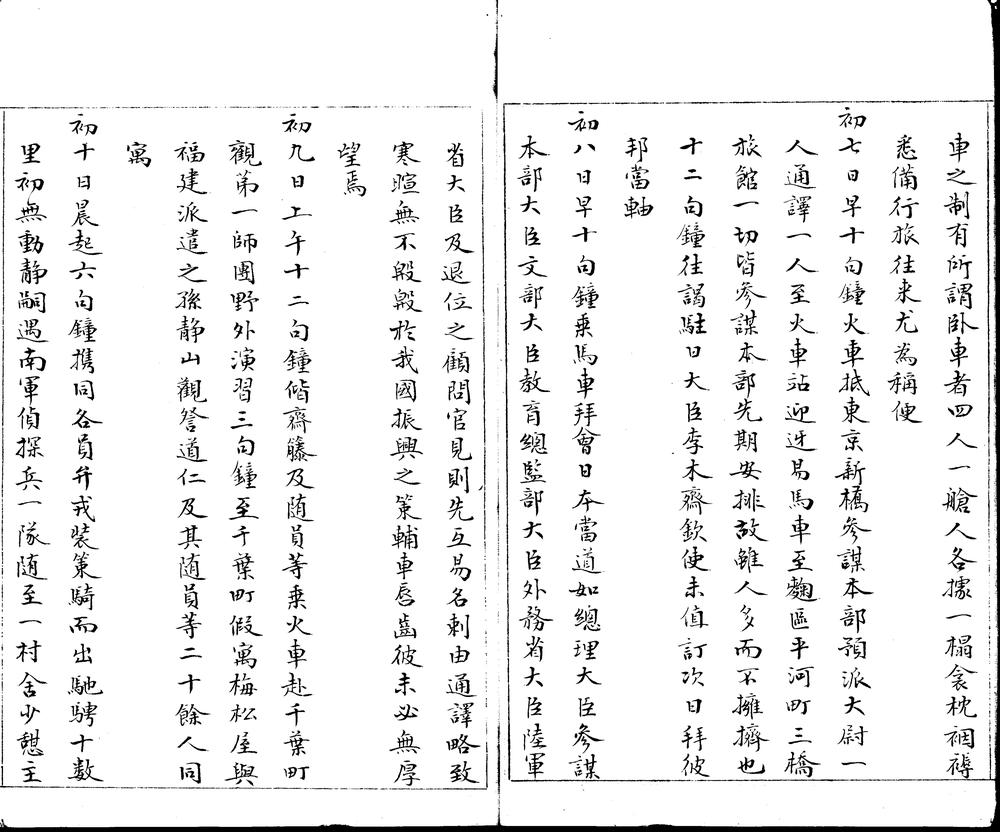 車之制有所謂卧車者四人一艙人各據一榻衾枕裀褥
悉備行旅往来尤為稱便
初七日早十句鐘火車抵東京新橋參謀本部預派大尉一
人通譯一人至火車站迎迓易馬車至麴區平河町三橋
旅館一切皆參謀本部先期安排故雖人多而不擁擠也
十二句鐘往謁駐日大臣李木齋欽使未值訂次日拜彼
邦當軸
初八日早十句鐘乗馬車拜會日本當道如總理大臣參謀
本部大臣文部大臣教育總監部大臣外務省大臣陸軍
省大臣及退位之顧問官見則先互易名刺由通譯略致
寒暄無不殷殷於我國振興之策輔車唇齒彼未必無厚
望焉
初九日上午十二句鐘偕齋籐及随員等乗火車赴千葉町
觀第一師團野外演習三句鐘至千葉町假寓梅松屋與
福建派遣之孫静山觀詧道仁及其随員等二十餘人同
寓
初十日晨起六句鐘携同各員弁戎裝策騎而出馳騁十数
里初無動静嗣遇南軍偵探兵一隊随至一村舍少憇主